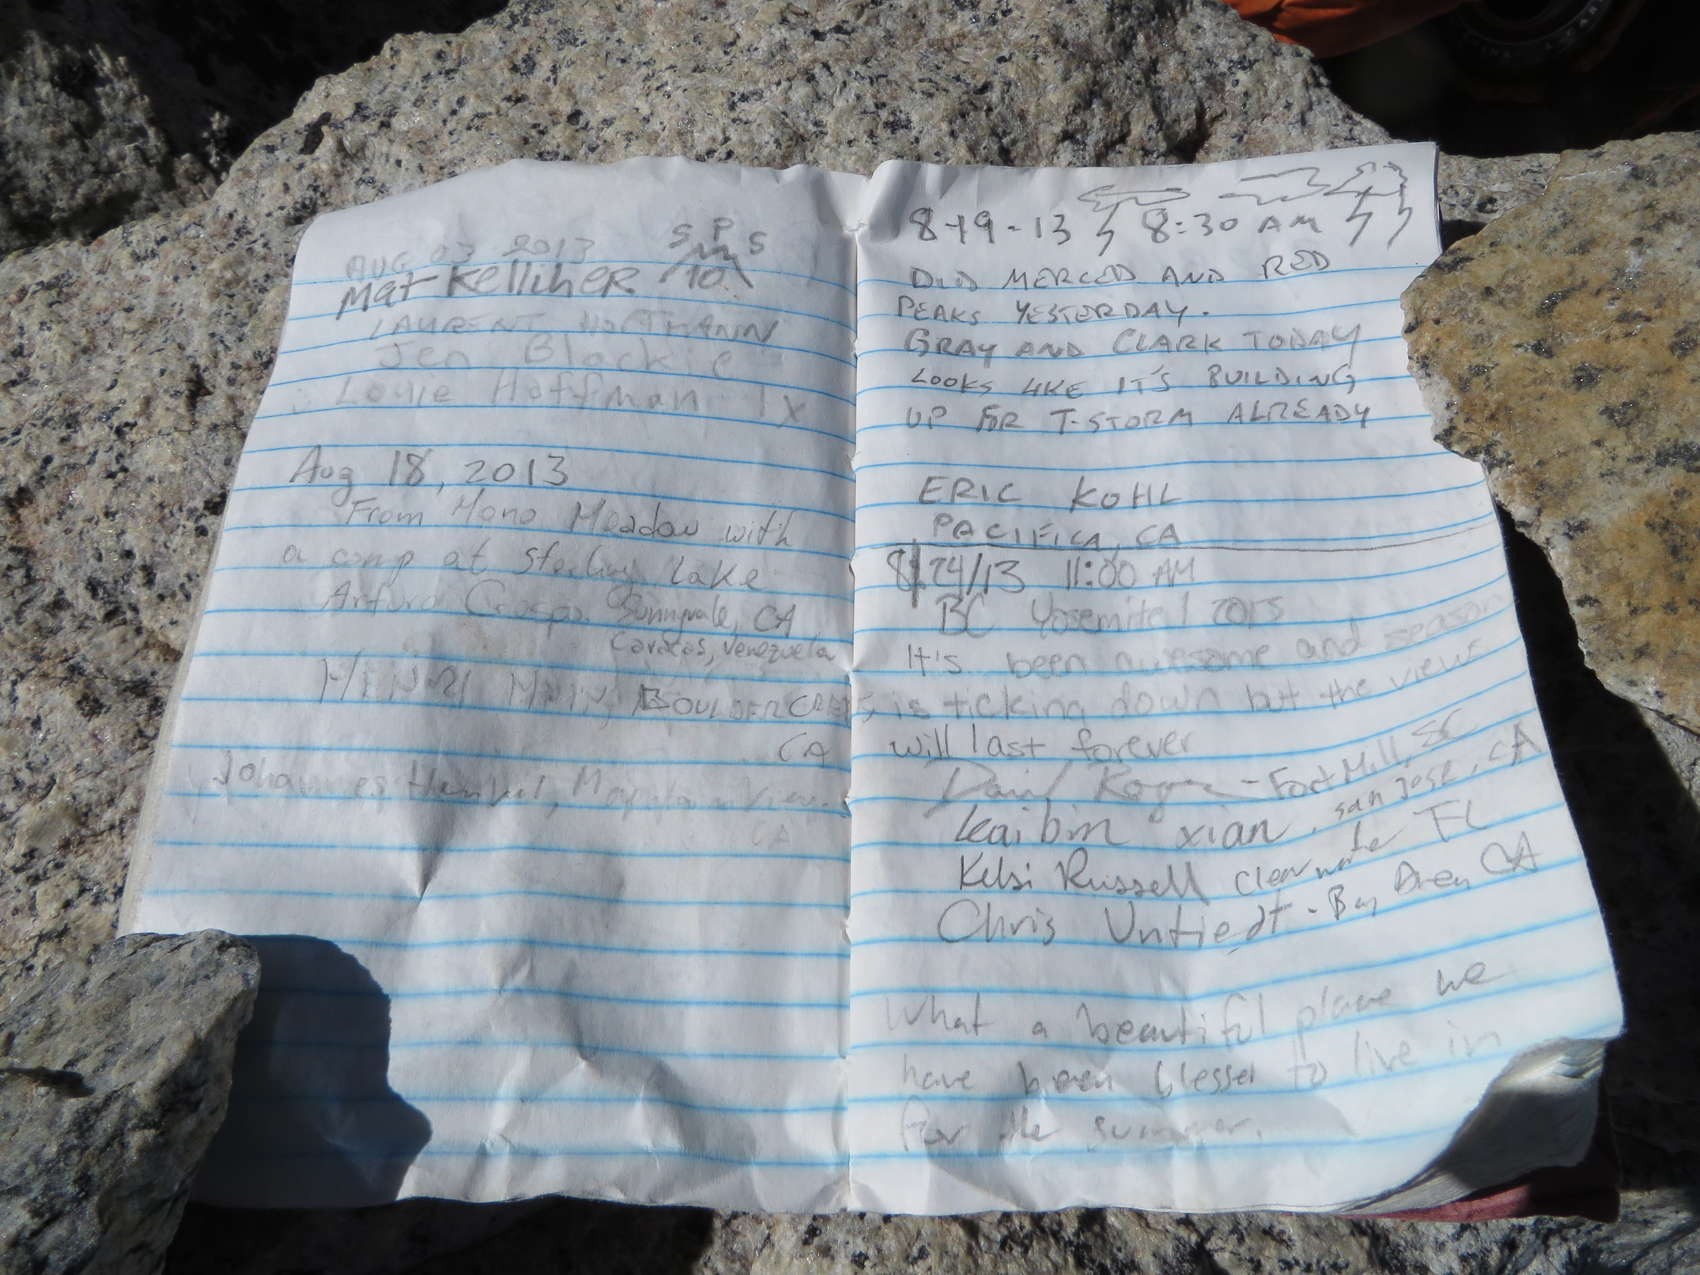 AUG 03 2013
S P S
Mat Kelliher 10
LAURENT HOFFMANN
Jen Blackie
Louie Hoffman 1x
Aug 18, 2013
From Mono Meadow with
a camp at Sterling Lake
Arturo Crespo Sunnyvale, CA
Caracas, Venezuela
BOULDER CREEK,
CA
Johannes Mountain View,
CA
8-19-13 8:30 AM
DID MERCED AND RED
PEAKS YESTERDAY.
GRAY AND CLARK TODAY
LOOKS LIKE IT'S BUILDING
UP FOR T-STORM ALREADY
ERIC KOHL
PACIFICA, CA
8/24/13 11:00 AM
BC Yosemite 1 2013
It's been awesome and season
is ticking down but the views
will last forever
David - Fort Mill, SC
Kaibin xian, san jose, CA
Kelsi Russell Clearwater FL
Chris Untiedt - Bay Area, CA
What a beautiful place we
have been blessed to live in
for the summer.